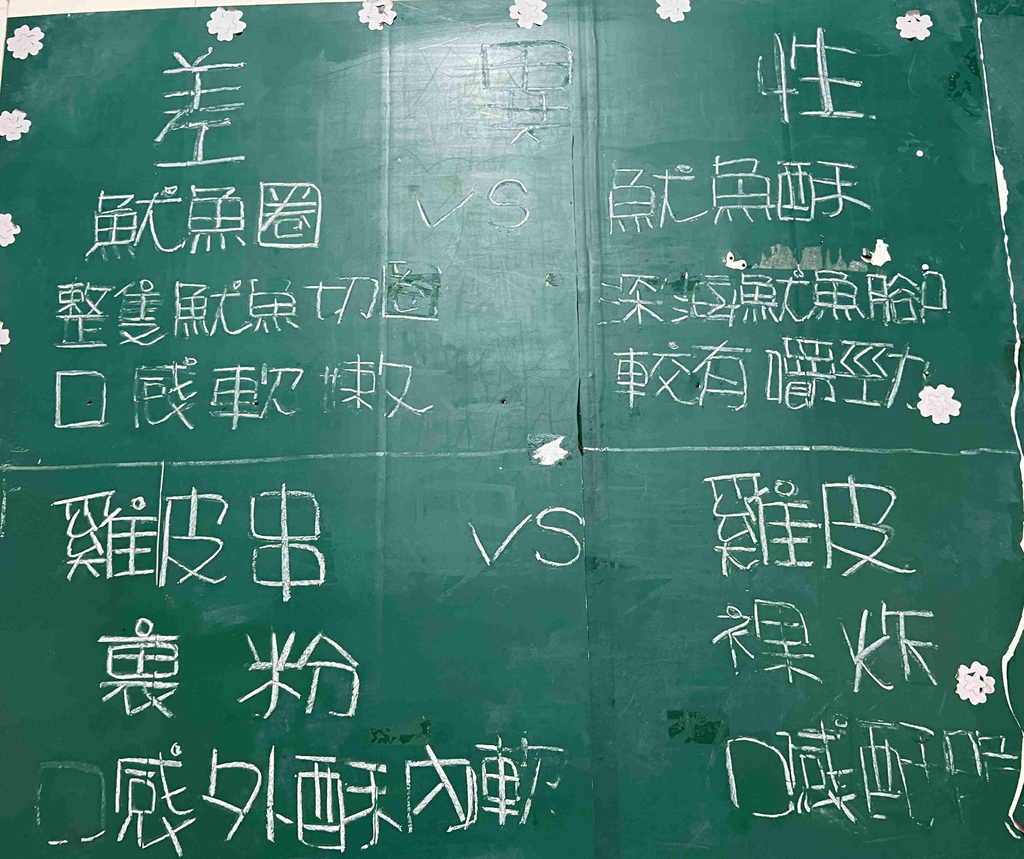 差異性
魷魚圈 VS 魷魚酥
整隻魷魚切圈 深海魷魚腳
口感軟嫩 較有嚼勁
雞皮串 VS 雞皮
裏粉 裸炸
口感外酥內軟 口感酥